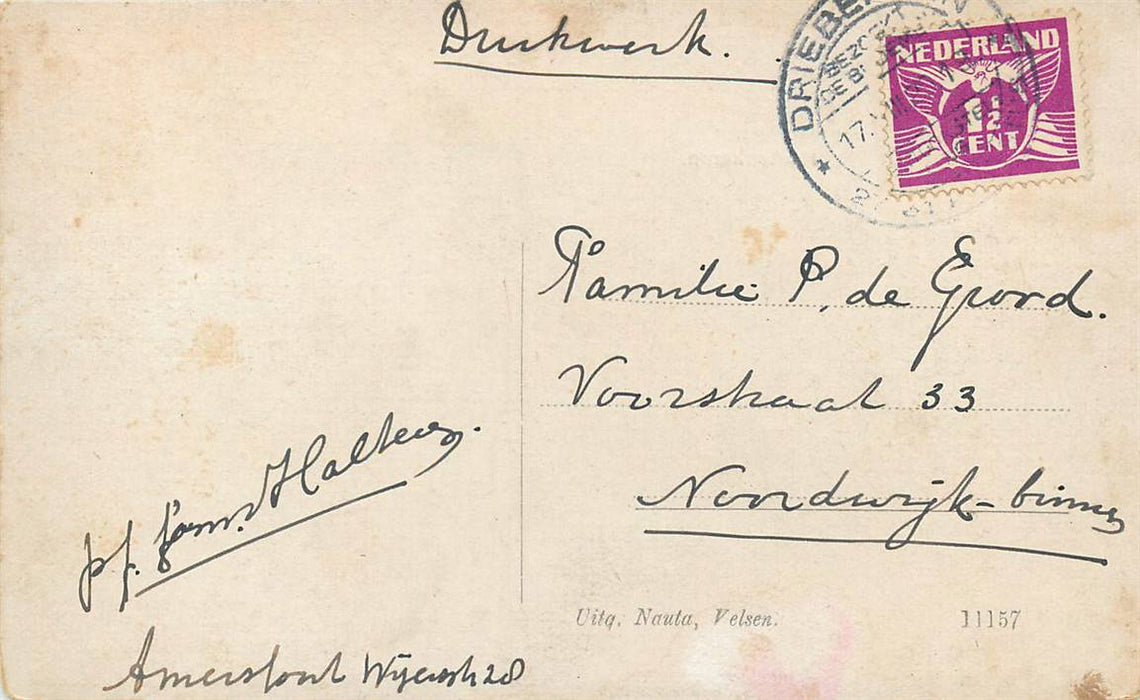 Drukwerk.
DRIEBERGEN
BEZOEKT
DE
17.
NEDERLAND
1½
CENT
Familie P. de Groot.
Voorstraat 33
Noordwijk-binnen
p.f. fam. Halteren.
Amersfoort
28
Uitg. Nauta, Velsen. 11157